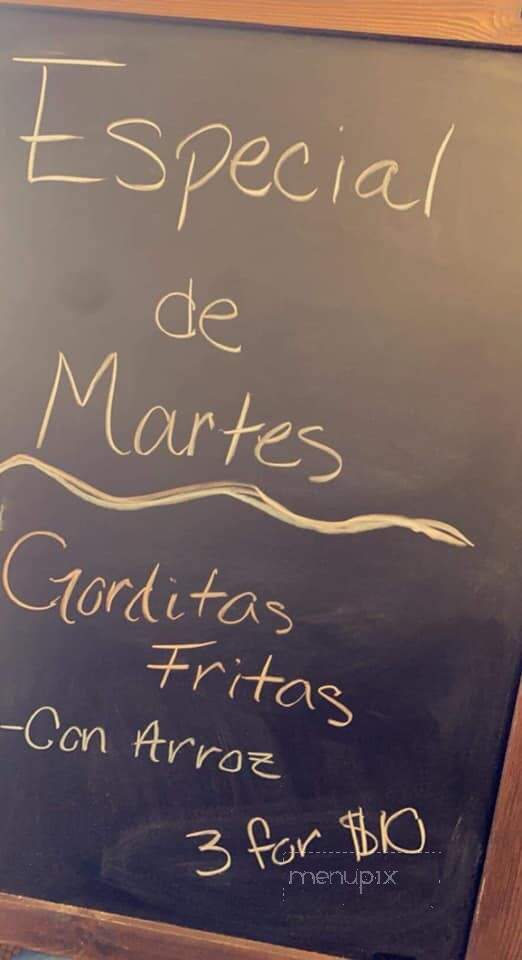 Especial
de
Martes
Gorditas
Fritas
-Con Arroz
3 for $10
menupix